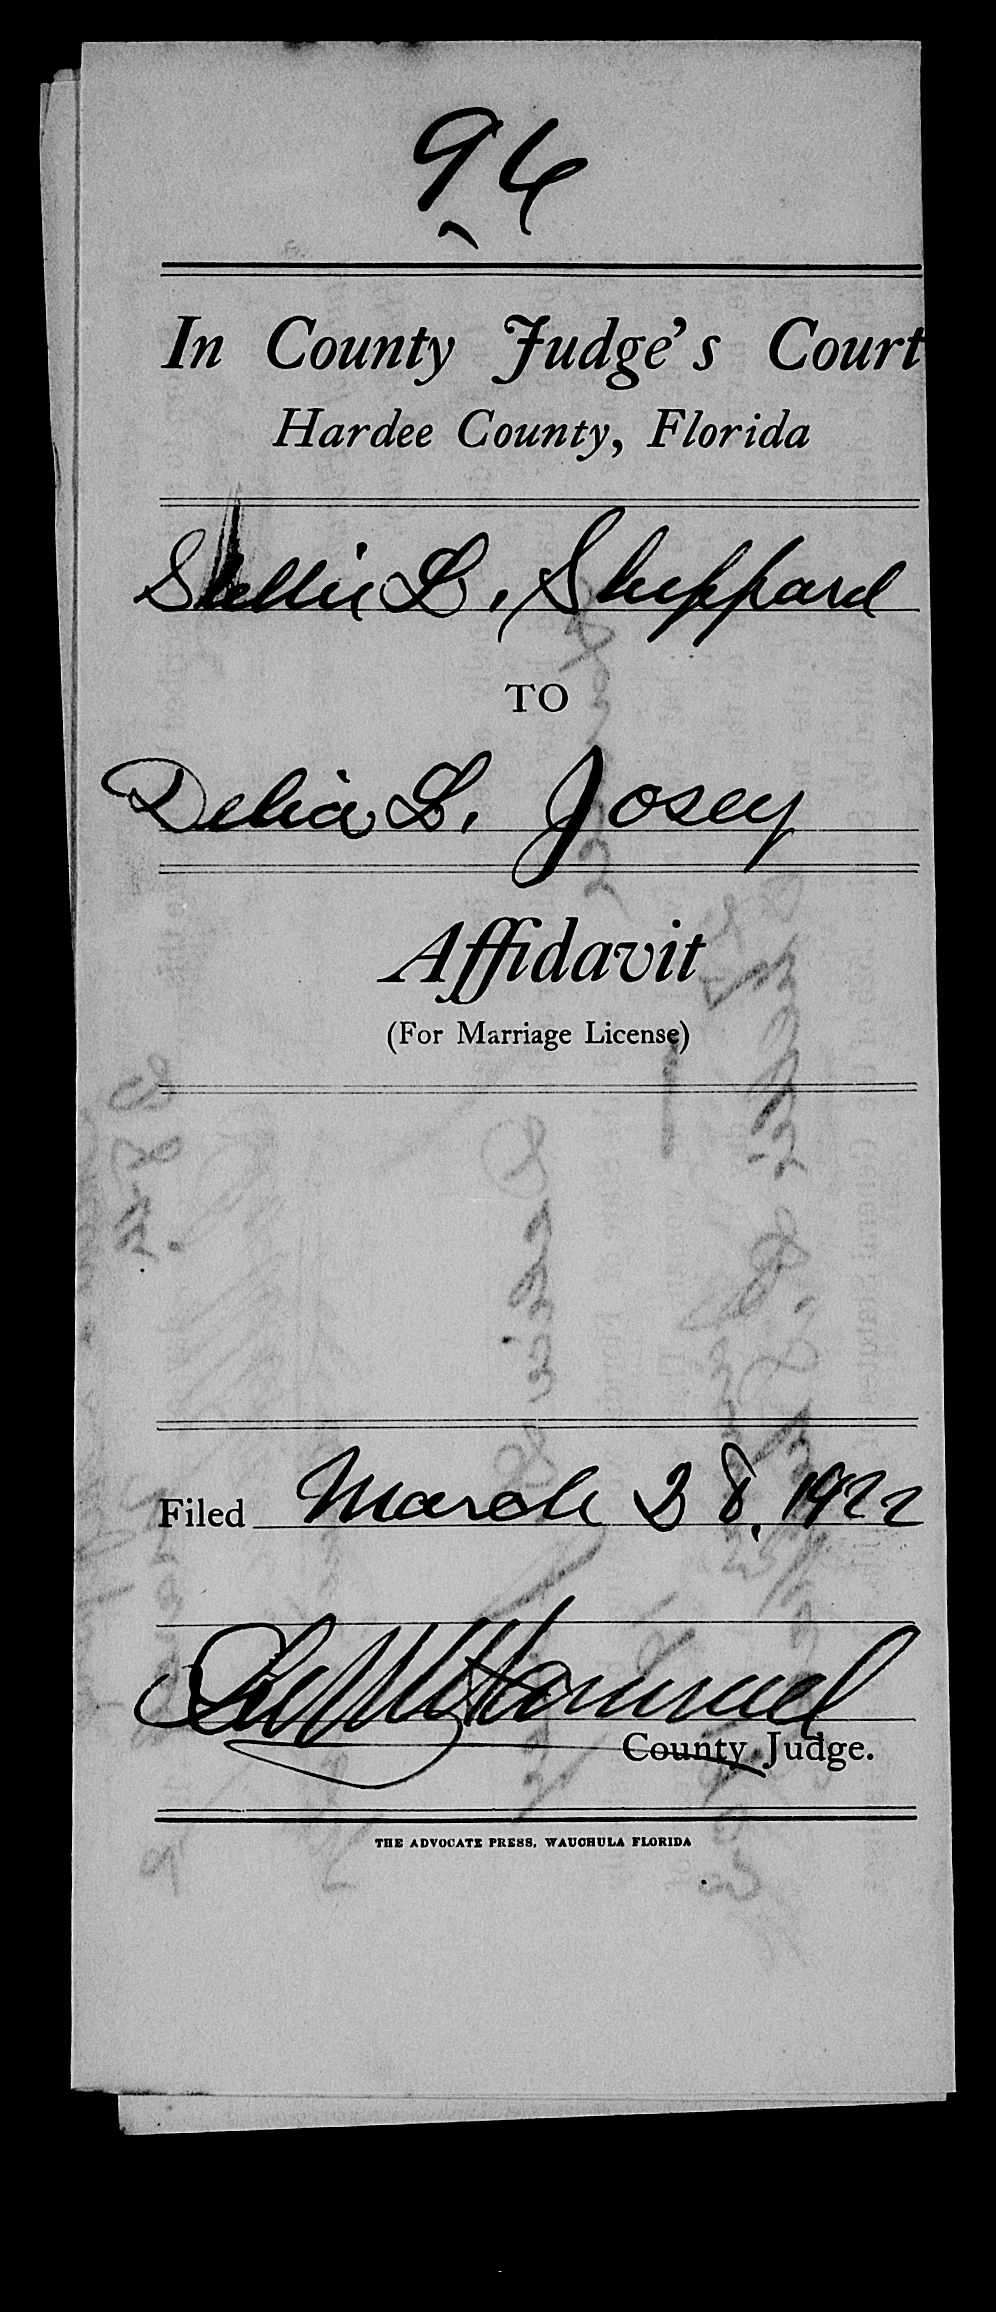 96
In County Judge's Court
Hardee County, Florida
L. Sheppard
TO
Delia L. Josey
Affidavit
(For Marriage License)
Filed March 28, 1922
County Judge.
THE ADVOCATE PRESS, WAUCHULA FLORIDA